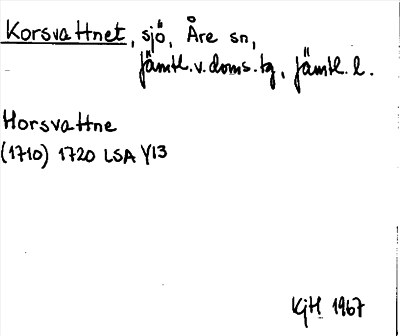 Korsvattnet, sjö, Åre sn,
Jämtl.v.doms.tg, Jämtl. l.
Horsvattne
(1710) 1720 LSA Y13
KjH 1967